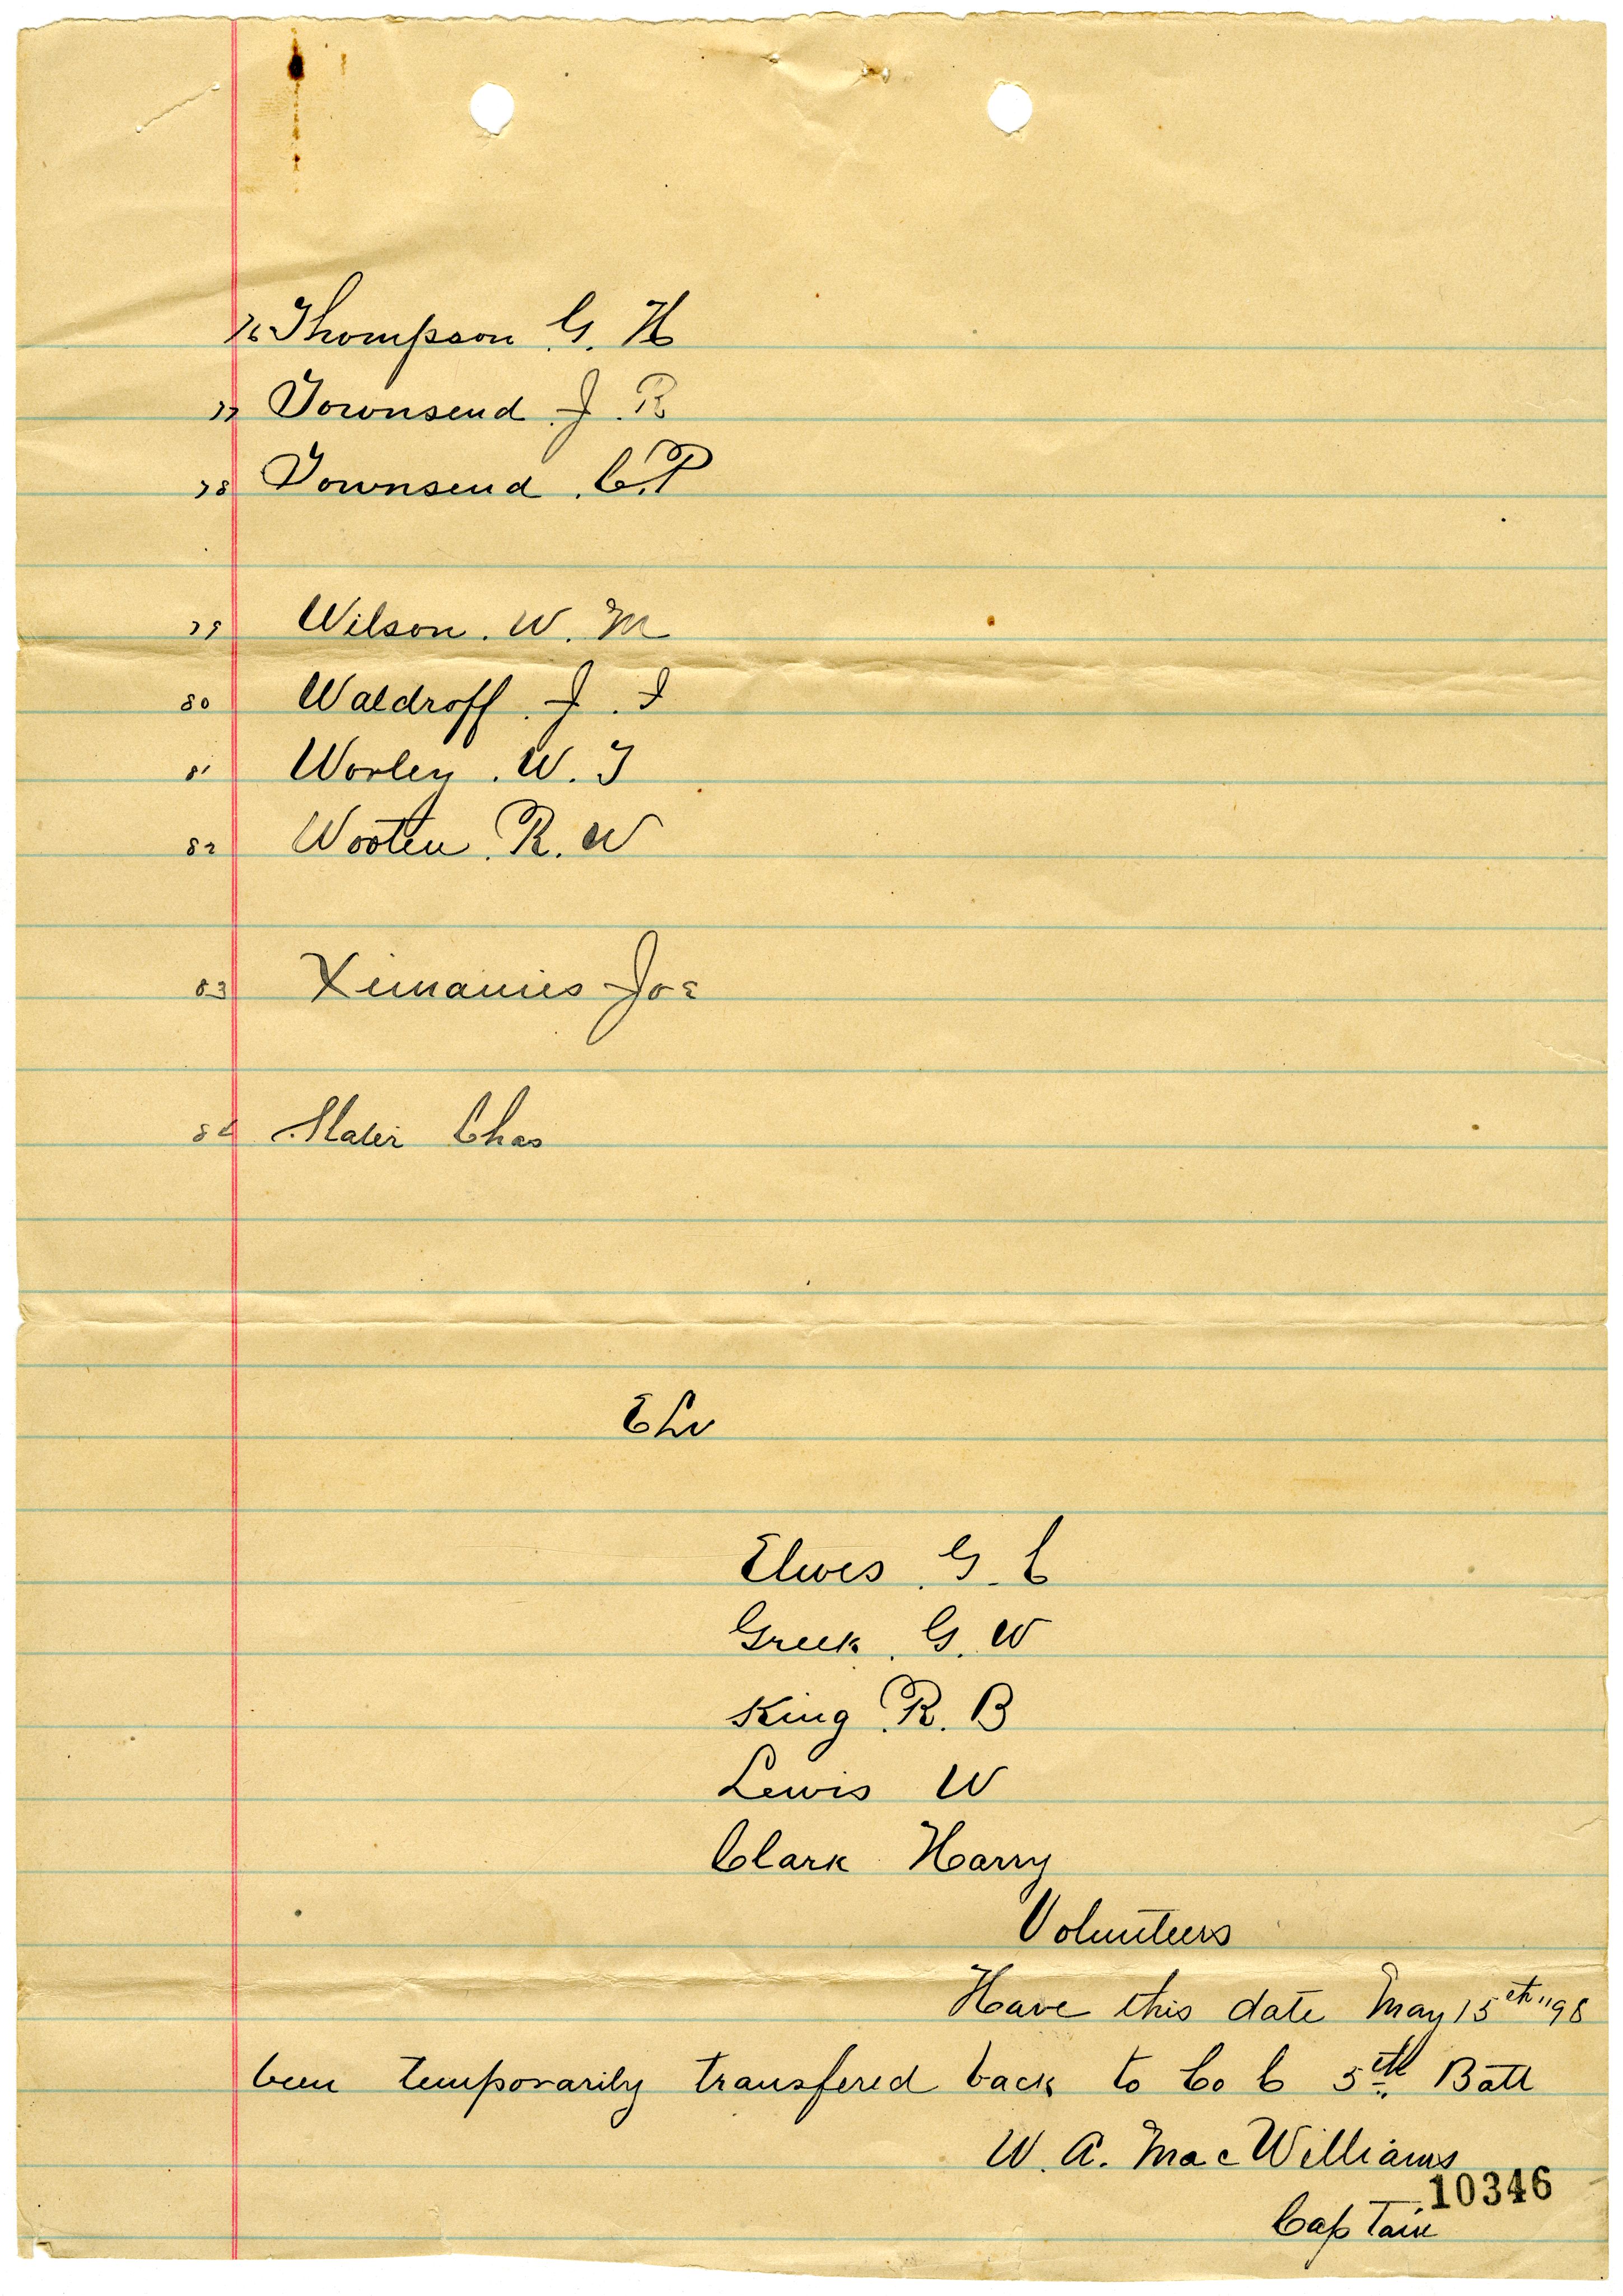 76 Thompson G. H
77 Townsend. J. R
78 Townsend. C. P
79 Wilson. W. M
80 Waldroff. J. I
81 Worley. W. T
82 Wooten. R. W
83 Ximanies Joe
84 Slater Chas
Elw
Elwes. G. C
Greek. G. W
King. R. B
Lewis W
Clark Harry
Volunteers
Have this date May 15th "98
been temporarily transfered back to Co C 5th Batt
W. A. MacWilliams
10346
Captain